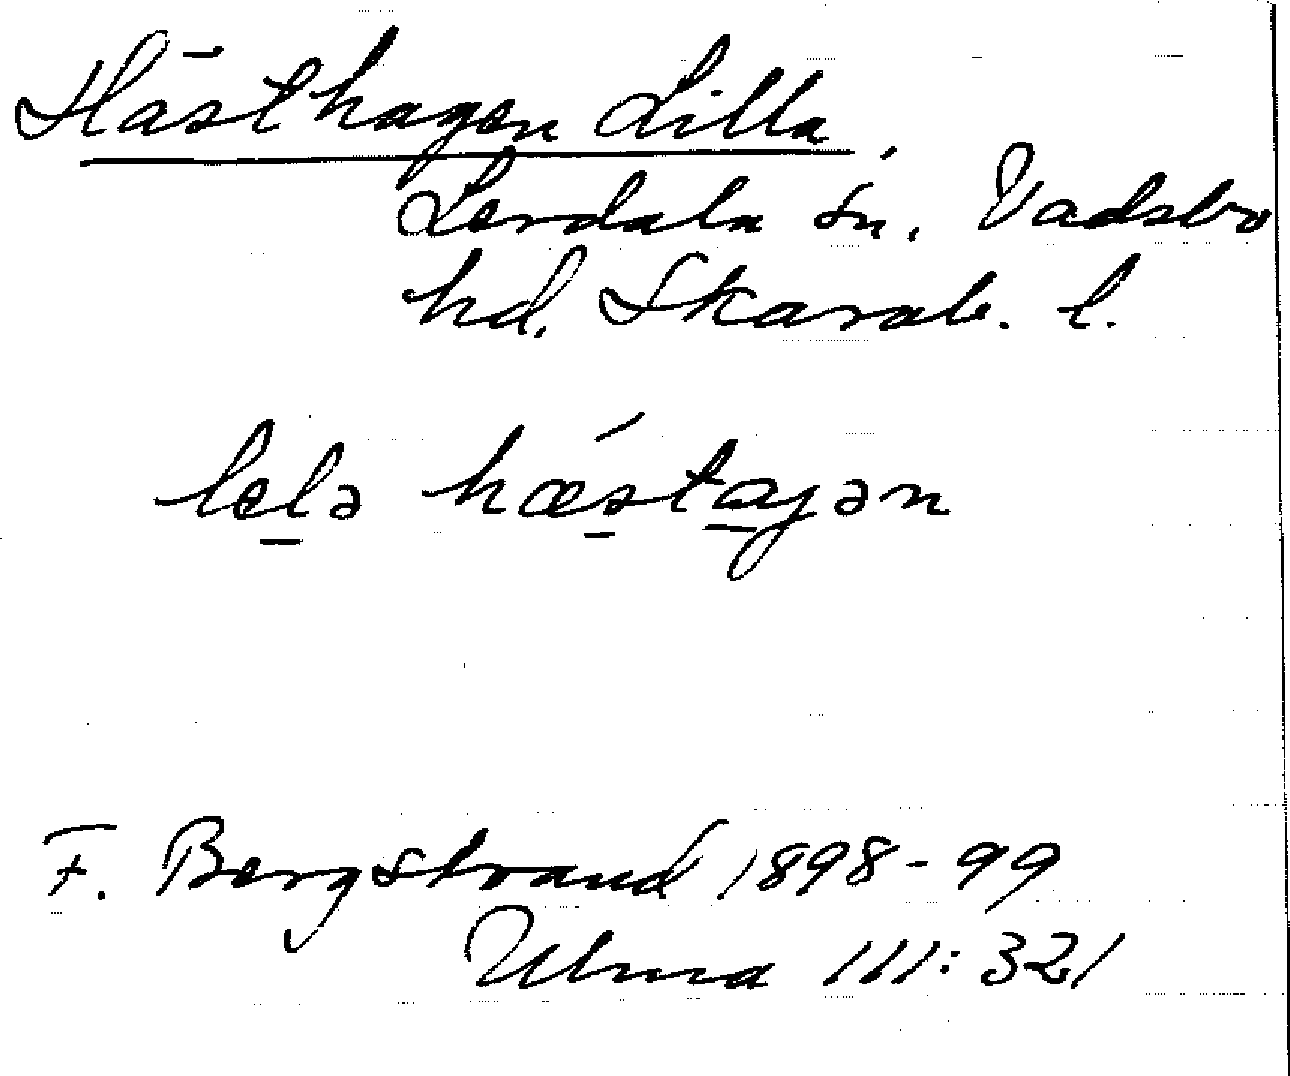 Hästhagen Lilla
Lerdala sn. Vadsbo
hd. Skarab. l.
lelə hǽstagən
F. Bergstrand 1898-99
Ulma 111:321